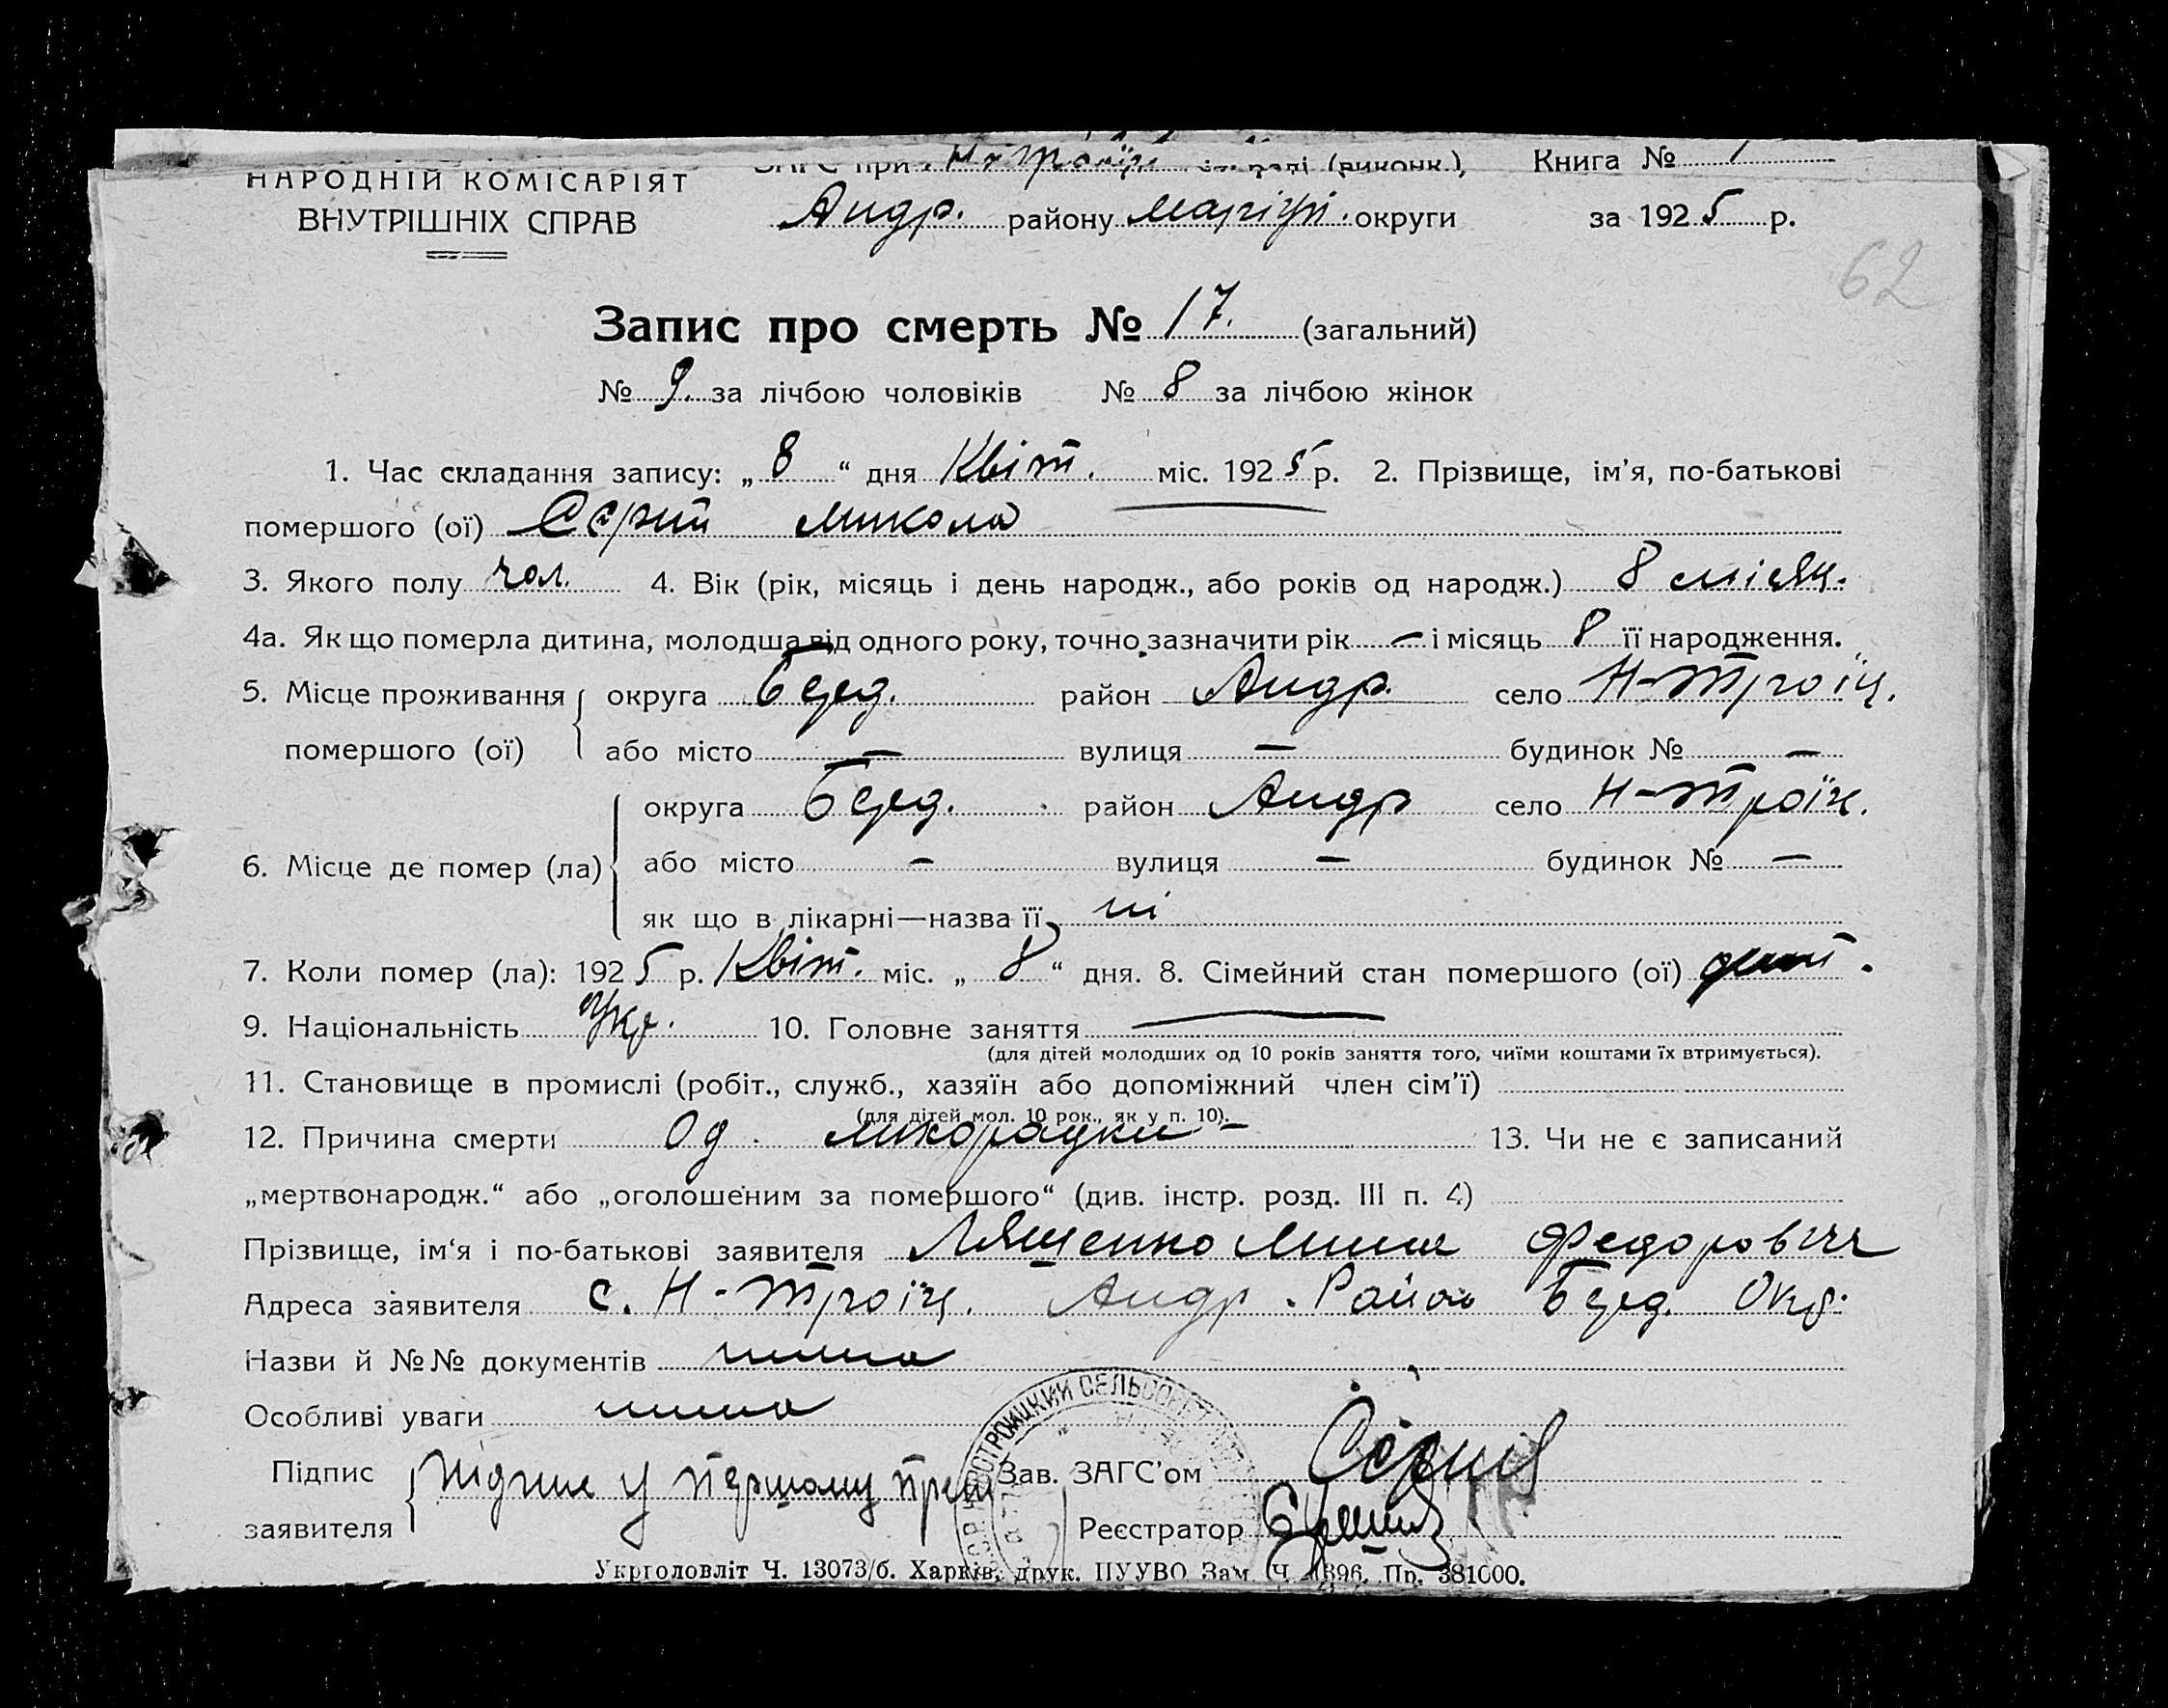 НАРОДНІЙ КОМІСАРІЯТ
ВНУТРІШНІХ СПРАВ
ЗАГС при (виконк.),
Андр. району Маріуп. округи
Книга № 1
за 1925 р.
62
Запис про смерть № 17. (загальний)
№ 9. за лічбою чоловіків № 8 за лічбою жінок
1. Час складання запису: „ 8 “ дня Квіт. міс. 1925 р. 2. Прізвище, ім’я, по-батькові
помершого (ої) Сєрий Микола
3. Якого полу чол. 4. Вік (рік, місяць і день народж., або років од народж.) 8 місяц.
4а. Як що померла дитина, молодша від одного року, точно зазначити рік — і місяць 8 її народження.
5. Місце проживання помершого (ої) округа Берд. район Андр. село Н-Троїц.
або місто — вулиця — будинок № —
6. Місце де помер (ла) округа Берд. район Андр село Н-Троїц.
або місто — вулиця — будинок № —
як що в лікарні—назва її ні
7. Коли помер (ла): 1925 р. Квіт. міс. „ 8 “ дня. 8. Сімейний стан помершого (ої)
9. Національність Укр. 10. Головне заняття —
(для дітей молодших од 10 років заняття того, чиїми коштами їх втримується).
11. Становище в промислі (робіт., служб., хазяїн або допоміжний член сім’ї)
(для дітей мол. 10 рок., як у п. 10).
12. Причина смерти Од лихорадки — 13. Чи не є записаний
„мертвонародж.“ або „оголошеним за помершого“ (див. інстр. розд. III п. 4)
Прізвище, ім‘я і по-батькові заявителя Лященко Федорович
Адреса заявителя с. Н-Троїц. Андр. Район Берд. Окр.
Назви й №№ документів нима
Особливі уваги нима
Підпис заявителя Підпис у першому
Зав. ЗАГС’ом
Реєстратор
Укрголовліт Ч. 13073/б. Харків, друк. ПУУВО Зам. Ч. 1396. Пр. 381000.